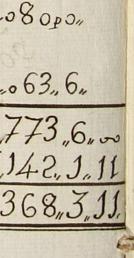 080po,,
,,063,,6,,
773,,6,,00
142,,1,,11
368,,3,,11